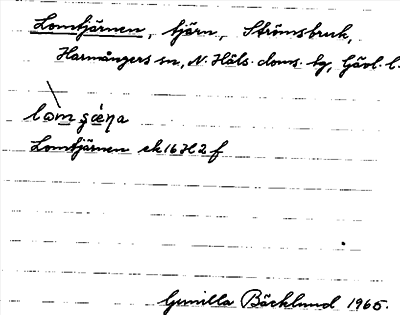 Lomtjärnen, tjärn, Strömsbruk,
Harmångers sn, N. Häls. doms. tg, Gävl. l.
lòm ʂæ̀ɳa
Lomtjärnen ek 16 H 2 f
Gunilla Bäcklund 1965.